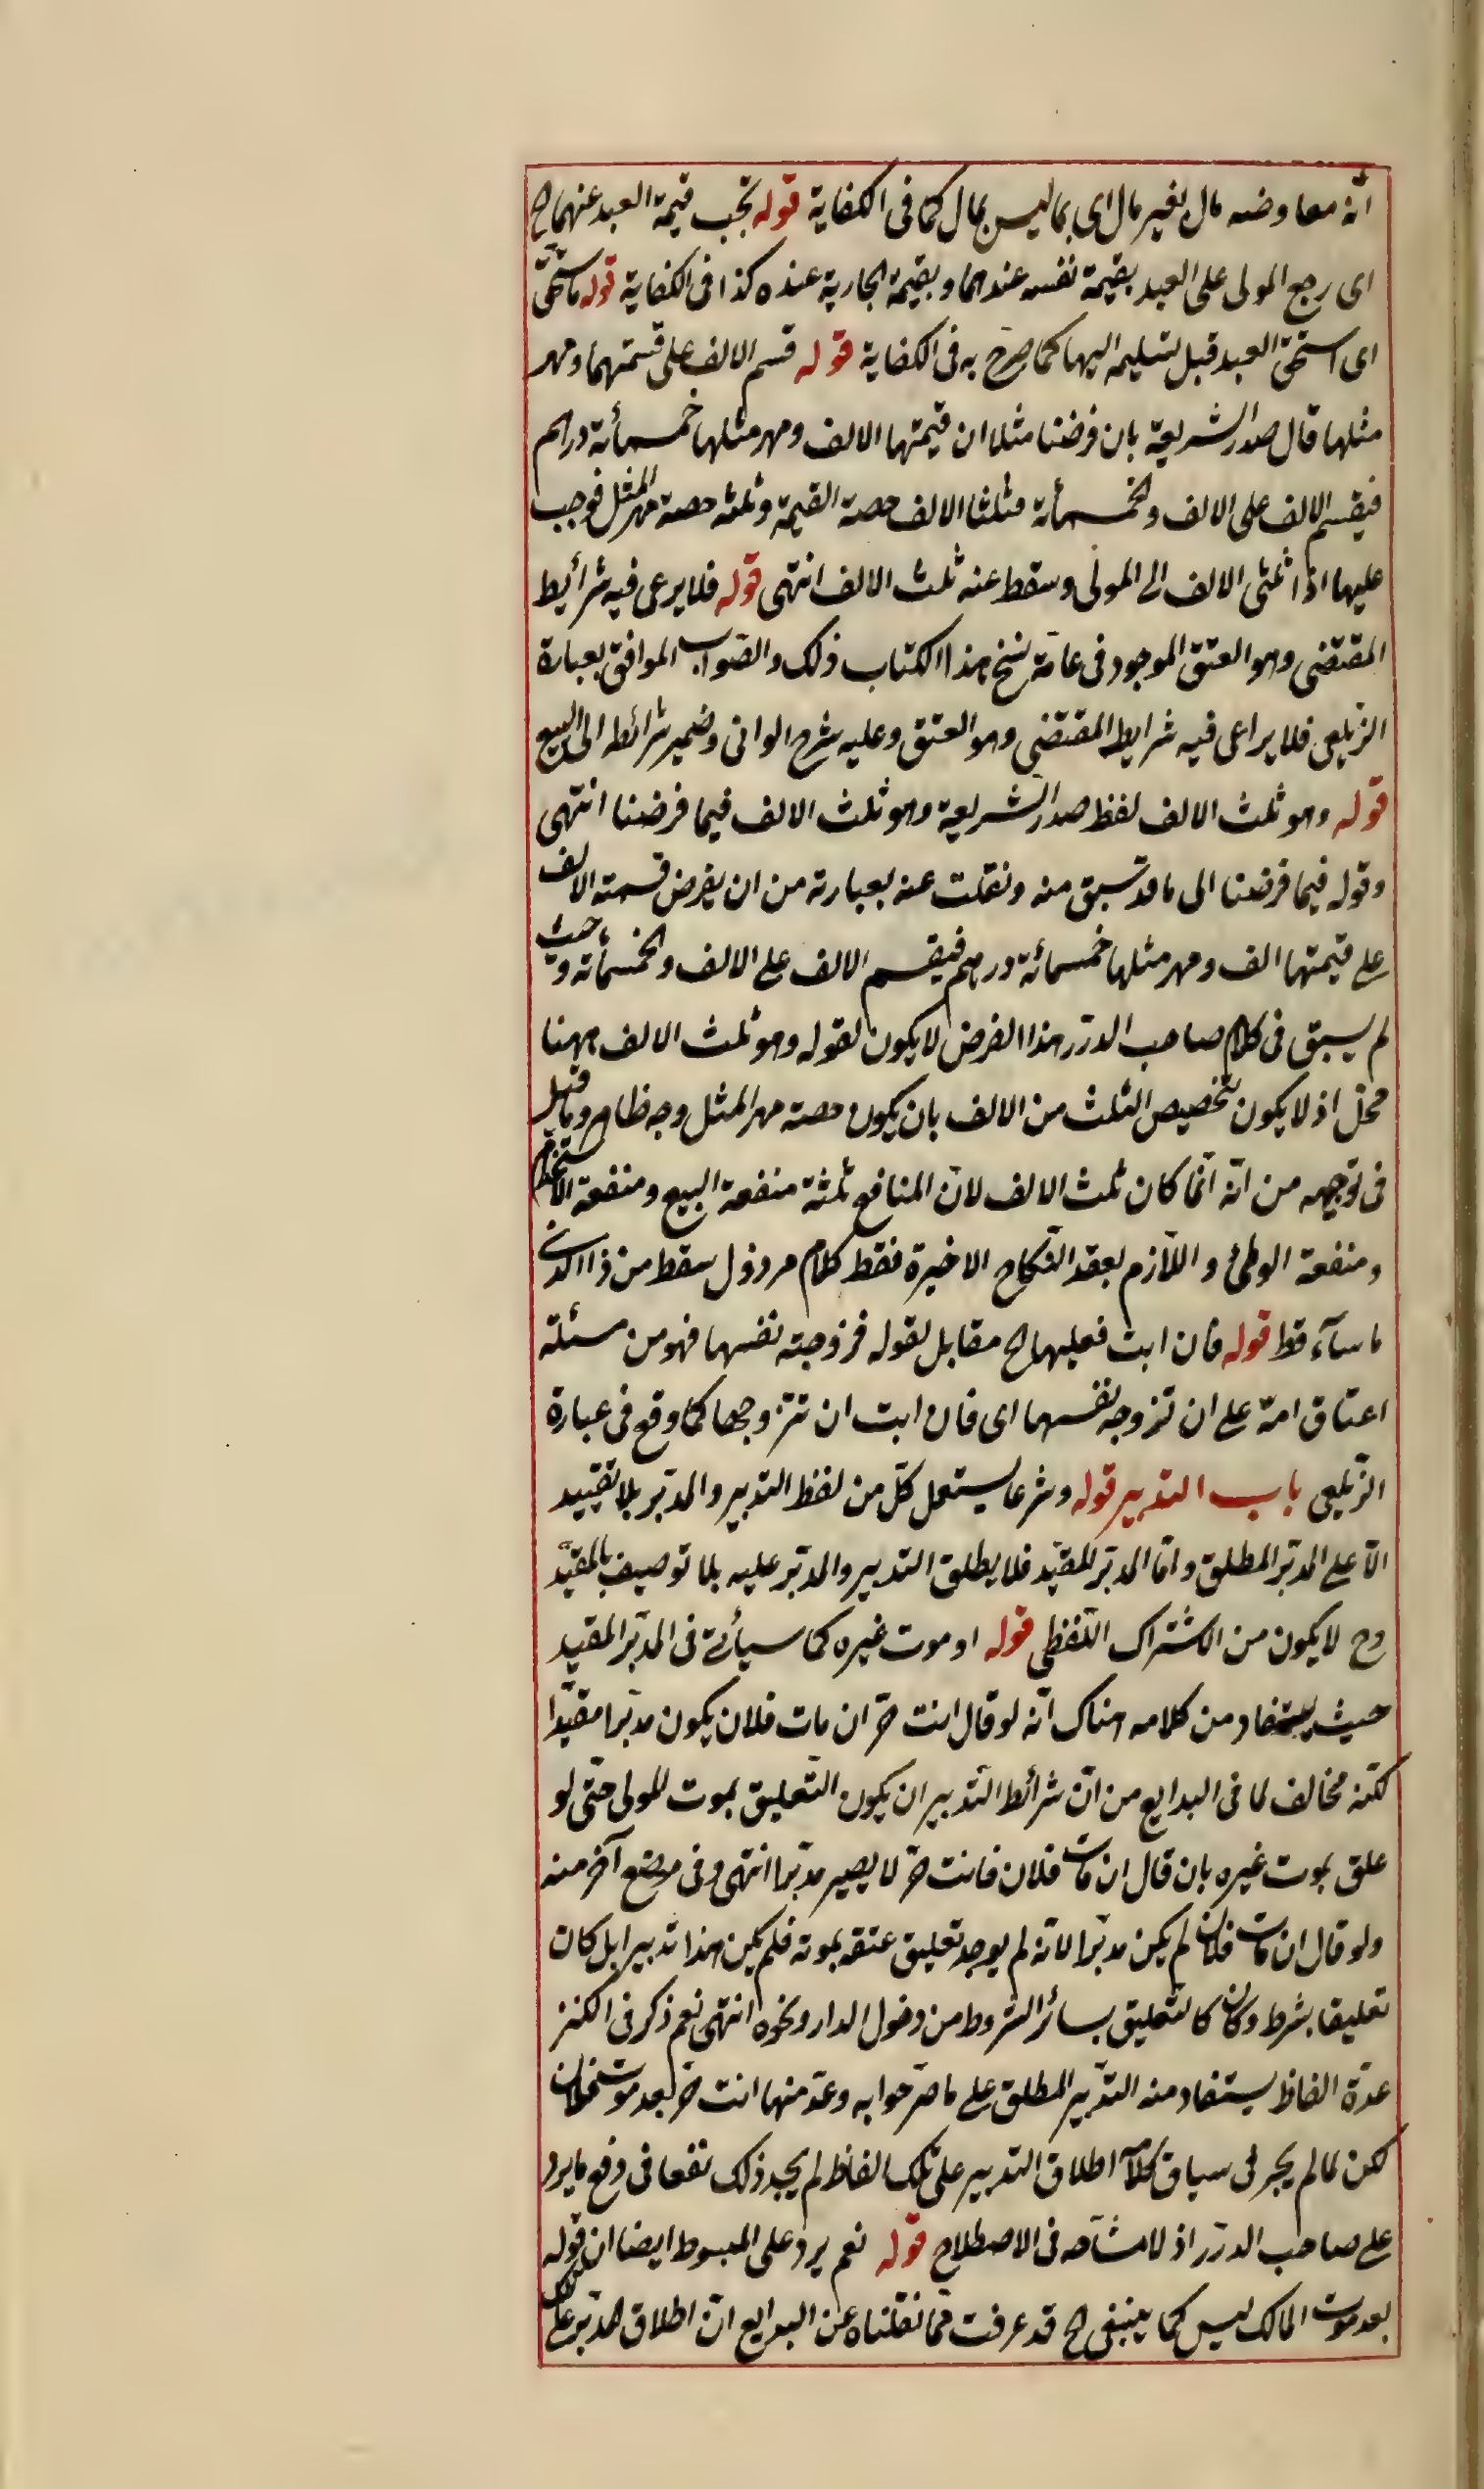 انه معاوضه مال بغير مال اى بما ليس بمال كما فى الكفاية قوله تجب قيمة العبد عندهما الخ
اى رجع المولى على العبد بقيمة نفسه عندهما وبقيمة الجارية عنده كذا فى الكفاية قوله فاستحق
اى استحق العبد قبل تسليمه اليها كما صرح به فى الكفاية قوله قسم الالف على قسمتهما ومهر
مثلها قال صدر الشريعة بان فرضنا مثلا ان قيمتها الالف ومهر مثلها خمسمأة دراهم
فيقسم الالف على الالف والخمسمأة فثلثا الالف حصة القيمة وثلثه حصة مهر المثل فوجب
عليها اذا ثلثى الالف الى المولى وسقط عنه ثلث الالف انتهى قوله فلا يرعى فيه شرأيط
المقتضى وهو العتق الموجود فى عامة نسخ هذا الكتاب ذلك والصواب الموافق بعبارة
الزيلعى فلا يراعى فيه شرايط المقتضى وهو العتق وعليه شرح الوانى وضمير شرائطه الى البيع
قوله وهو ثلث الالف لفظ صدر الشريعة وهو ثلث الالف فيما فرضنا انتهى
وقوله فيما فرضنا الى ما قد سبق منه ونقلت عنه بعبارته من ان يفرض قسمة الالف
على قيمتها الف ومهر مثلها خمسمائة درهم فيقسم الالف على الالف والخمسمأة وحيث
لم يسبق فى كلام صاحب الدرر هذا الفرض لا يكون لقوله وهو ثلث الالف ههنا
محل اذ لا يكون تخصيص الثلث من الالف بان يكون حصة مهر المثل وجه ظاهر وما قيل
فى توجيهه من انه انما كان ثلث الالف لان المنافع ثلثة منفعة البيع ومنفعة الاستخدام
ومنفعة الوطئ واللازم بعقد النكاح الاخيرة فقط كلام مرذول سقط من ذا الذى
ما ساء قط قوله فان ابت فعليها الخ مقابل لقوله فزوجته نفسها فهو من مسئلة
اعتاق امة على ان تزوجه نفسها اى فان ابت ان تتزوجها كما وقع فى عبارة
الزيلعى باب التدبير قوله وشرعا يستعمل كل من لفظ التدبير والمدبر بلا تقييد
الا على المدبر المطلق واما المدبر المقيد فلا يطلق التدبير والمدبر عليه بلا توصيف بالمقيد
وح لا يكون من الاشتراك اللفظى قوله او موت غيره كما سيأتى فى المدبر المقيد
حيث يستفاد من كلامه هناك انه لو قال انت حر ان مات فلان يكون مدبرا مقيدا
لكنه مخالف لما فى البدايع من ان شرائط التدبير ان يكون التعليق بموت المولى حتى لو
علق بموت غيره بان قال ان مات فلان فانت حر لا يصير مدبرا انتهى وفى موضع آخر منه
ولو قال ان مات فلان لم يكن مدبرا لانه لم يوجد تعليق عتقه بموته فلم يكن هذا تدبيرا بل كان
تعليقا بشرط وكان كالتعليق بسائر الشروط من دخول الدار ونحوه انتهى نعم ذكر فى الكنز
عدة الفاظ يستفاد منه التدبير المطلق على ما صرحوا به وعد منها انت حر بعد موت فلان
لكن لما لم يجر فى سياق كلامه اطلاق التدبير على تلك الفاظ لم يجد ذلك نفعا فى دفع ما يرد
على صاحب الدرر اذ لا مشاحه فى الاصطلاح قوله نعم يرد على المبسوط ايضا ان قوله
بعد موت المالك ليس كما ينبغى الخ قد عرفت مما نقلناه عن البدايع ان اطلاق المدبر على